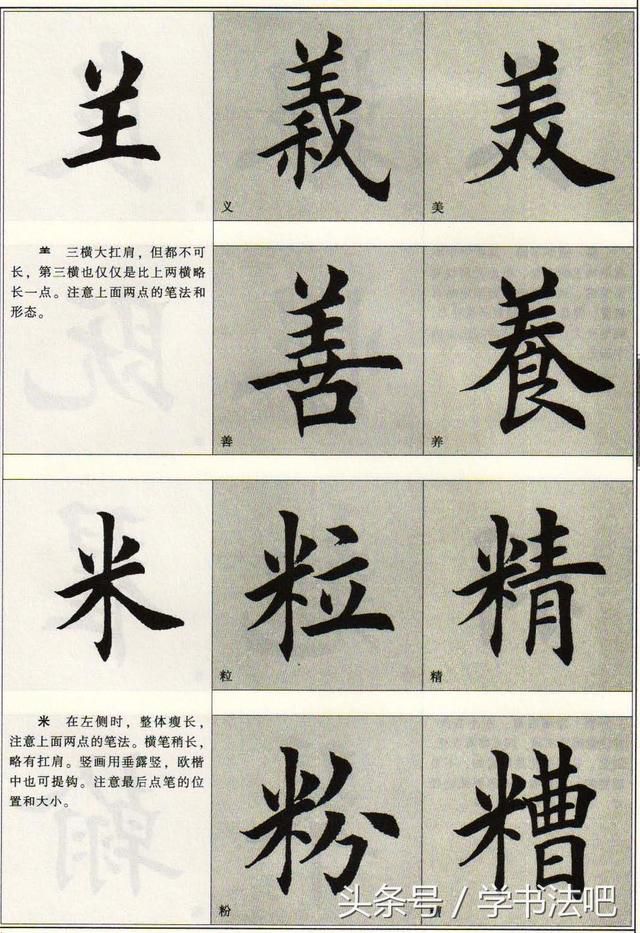 𦍌
義 美
义 美
𦍌 三横大扛肩，但都不可
长，第三横也仅仅是比上两横略
长一点。注意上面两点的笔法和
形态。
善 養
善 养
米
粒 精
粒 精
米 在左侧时，整体瘦长，
注意上面两点的笔法。横笔稍长，
略有扛肩。竖画用垂露竖，欧楷
中也可提钩。注意最后点笔的位
置和大小。
粉 糟
粉
头条号 / 学书法吧